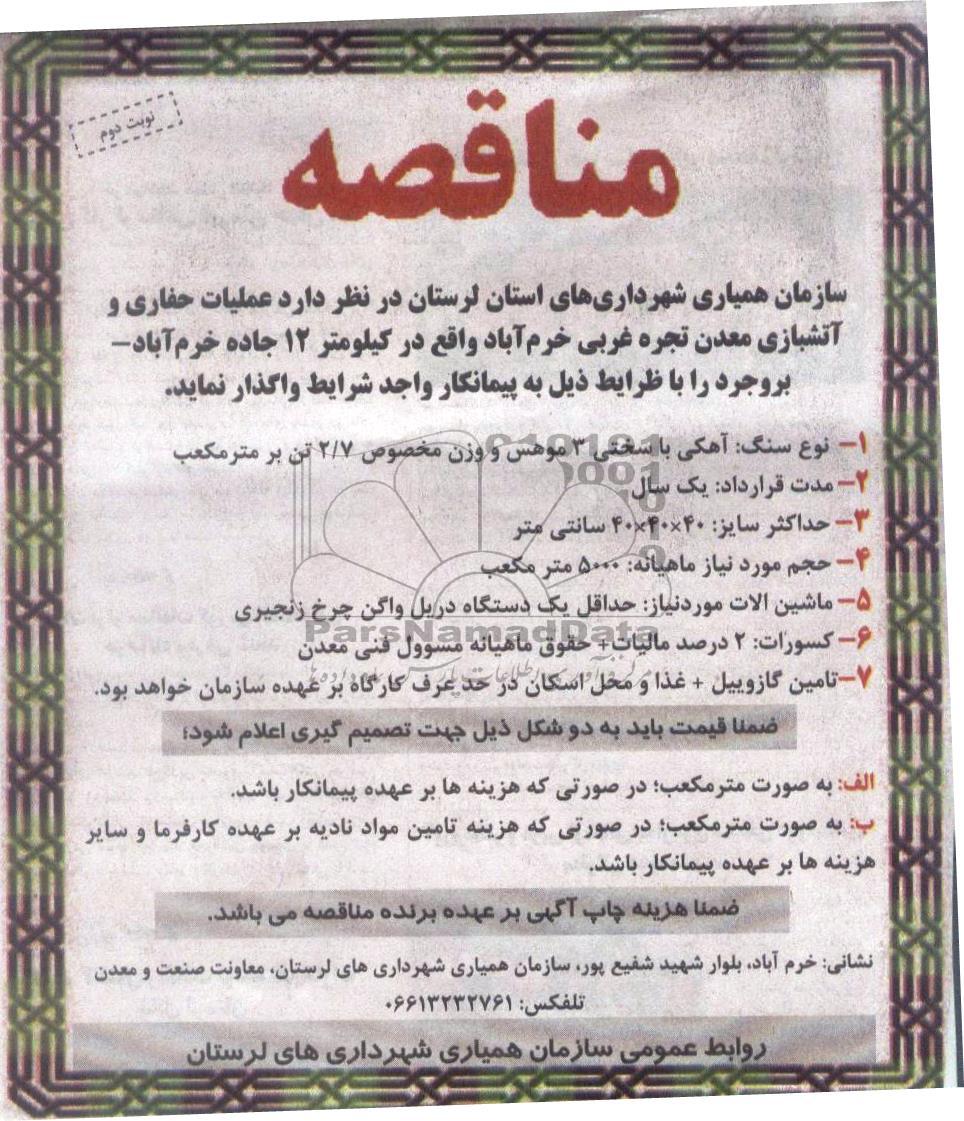 نوبت دوم
مناقصه
سازمان همیاری شهرداری‌های استان لرستان در نظر دارد عملیات حفاری و
آتشبازی معدن تجره غربی خرم‌آباد واقع در کیلومتر ۱۲ جاده خرم‌آباد–
بروجرد را با ظرایط ذیل به پیمانکار واجد شرایط واگذار نماید.
۱– نوع سنگ: آهکی با سختی ۳ موهس و وزن مخصوص ۲/۷ تن بر مترمکعب
۲– مدت قرارداد: یک سال
۳– حداکثر سایز: ۴۰×۴۰×۴۰ سانتی متر
۴– حجم مورد نیاز ماهیانه: ۵۰۰۰ متر مکعب
۵– ماشین الات موردنیاز: حداقل یک دستگاه دریل واگن چرخ زنجیری
ParsNamadData
۶– کسورات: ۲ درصد مالیات+ حقوق ماهیانه مسوول فنی معدن
۷–تامین گازوییل + غذا و محل اسکان در حد عرف کارگاه بر عهده سازمان خواهد بود.
ضمنا قیمت باید به دو شکل ذیل جهت تصمیم گیری اعلام شود؛
الف: به صورت مترمکعب؛ در صورتی که هزینه ها بر عهده پیمانکار باشد.
ب: به صورت مترمکعب؛ در صورتی که هزینه تامین مواد نادیه بر عهده کارفرما و سایر
هزینه ها بر عهده پیمانکار باشد.
ضمنا هزینه چاپ آگهی بر عهده برنده مناقصه می باشد.
نشانی: خرم آباد، بلوار شهید شفیع پور، سازمان همیاری شهرداری های لرستان، معاونت صنعت و معدن
تلفکس: ۰۶۶۱۳۲۳۲۷۶۱
روابط عمومی سازمان همیاری شهرداری های لرستان